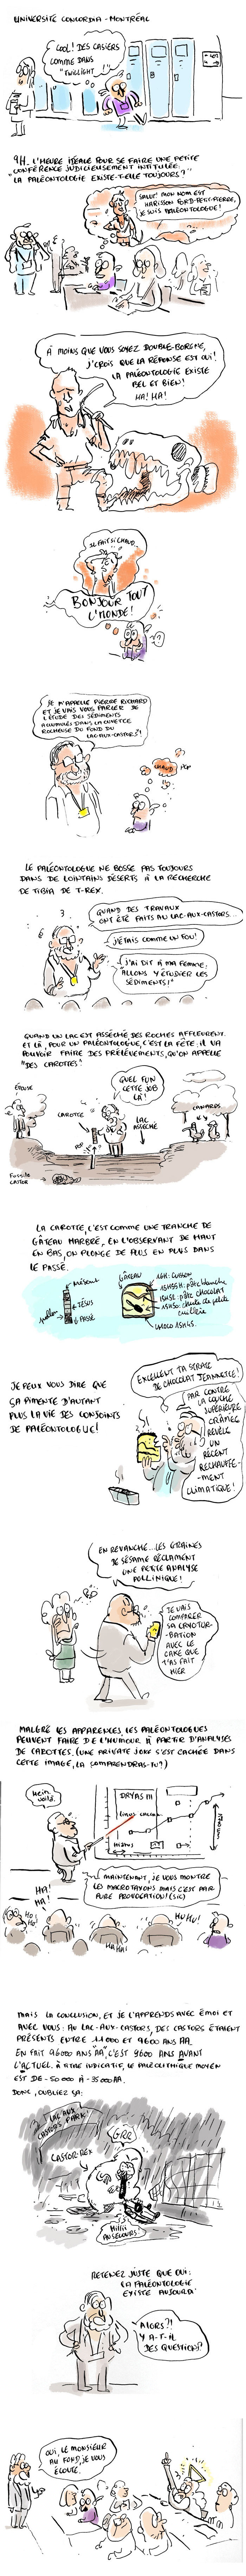 UNIVERSITÉ CONCORDIA - MONTRÉAL
COOL! DES CASIERS
COMME DANS
"TWILIGHT!"
9H. L'HEURE IDÉALE POUR SE FAIRE UNE PETITE
CONFÉRENCE JUDICIEUSEMENT INTITULÉE
"LA PALÉONTOLOGIE EXISTE-T-ELLE TOUJOURS?"
SALUT! MON NOM EST
HARISSON FORD-PETIT-PIERRE,
JE SUIS PALÉONTOLOGUE!
À MOINS QUE VOUS SOYEZ DOUBLE-BORGNE,
J'CROIS QUE LA RÉPONSE EST OUI!
LA PALÉONTOLOGIE EXISTE
BEL ET BIEN!
HA! HA!
IL FAIT SI CHAUD...
BONJOUR TOUT
L'MONDE!
?
JE M'APPELLE PIERRE RICHARD
ET JE VAIS VOUS PARLER DE
L'ÉTUDE DES SÉDIMENTS
ACCUMULÉS DANS LA CUVETTE
ROCHEUSE DU FOND DU
LAC-AUX-CASTORS!
CHAUD
POP
LE PALÉONTOLOGUE NE BOSSE PAS TOUJOURS
DANS DE LOINTAINS DÉSERTS À LA RECHERCHE
DE TIBIA DE T-REX.
QUAND DES TRAVAUX
ONT ÉTÉ FAITS AU LAC-AUX-CASTORS...
J'ÉTAIS COMME UN FOU!
J'AI DIT À MA FEMME:
"ALLONS Y ÉTUDIER LES
SÉDIMENTS!"
QUAND UN LAC EST ASSÉCHÉ DES ROCHES AFFLEURENT.
ET LÀ, POUR UN PALÉONTOLOGUE, C'EST LA FÊTE: IL VA
POUVOIR FAIRE DES PRÉLÈVEMENTS, QU'ON APPELLE
"DES CAROTTES".
ÉPOUSE
QUEL FUN
CETTE JOB
LÀ!
CAROTTE
LAC
ASSÉCHÉ
CANARDS
POP
FOSSILE
CASTOR
LA CAROTTE, C'EST COMME UNE TRANCHE DE
GÂTEAU MARBRÉ, EN L'OBSERVANT DE HAUT
EN BAS, ON PLONGE DE PLUS EN PLUS DANS
LE PASSÉ.
PRÉSENT
JÉSUS
PASSÉ
GÂTEAU
16H: CUISSON
JE PEUX VOUS DIRE QUE
ÇA PIMENTE D'AUTANT
PLUS LA VIE DES CONJOINTS
DE PALÉONTOLOGUE!
EXCELLENT TA STRATE
DE CHOCOLAT JEANNETTE!
PAR CONTRE
LA COUCHE
SUPÉRIEURE
CRAMÉE
RÉVÈLE
UN
RÉCENT
RÉCHAUFFE-
MENT
CLIMATIQUE!
EN REVANCHE... LES GRAINES
DE SÉSAME RÉCLAMENT
UNE PETITE ANALYSE
POLLINIQUE!
JE VAIS
COMPARER
SA CRYOTUR-
BATION
AVEC LE
CAKE QUE
T'AS FAIT
HIER
MALGRÉ LES APPARENCES, LES PALÉONTOLOGUES
PEUVENT FAIRE DE L'HUMOUR À PARTIR D'ANALYSES
DE CAROTTES. (UNE PRIVATE JOKE S'EST CACHÉE DANS
CETTE IMAGE, LA COMPRENDRAS-TU?)
HEIN,
VOILÀ.
DRYAS III
HIATUS
MAINTENANT, JE VOUS MONTRE
LES MACROTAXONS MAIS C'EST PAR
PURE PROVOCATION! (SIC)
HA!
HA!
HO!
HO!
HAHAI
HUHU!
MAIS LA CONCLUSION, ET JE L'APPRENDS AVEC ÉMOI ET
AVEC VOUS: AU LAC-AUX-CASTORS, DES CASTORS ÉTAIENT
PRÉSENTS ENTRE 11000 ET 9600 ANS AA.
EN FAIT 9600 ANS "AA", C'EST 9600 ANS AVANT
L'ACTUEL. À TITRE INDICATIF, LE PALÉOLITHIQUE MOYEN
EST DE -50 000 À -35 000 AA.
DONC, OUBLIEZ ÇA:
LAC AUX
CASTORS PARK
GRR
CASTOR-REX
RETENEZ JUSTE QUE OUI:
LA PALÉONTOLOGIE
EXISTE AUJOURD'
ALORS?!
Y A-T-IL
DES QUESTIONS?
OUI, LE MONSIEUR
AU FOND, JE VOUS
ÉCOUTE.